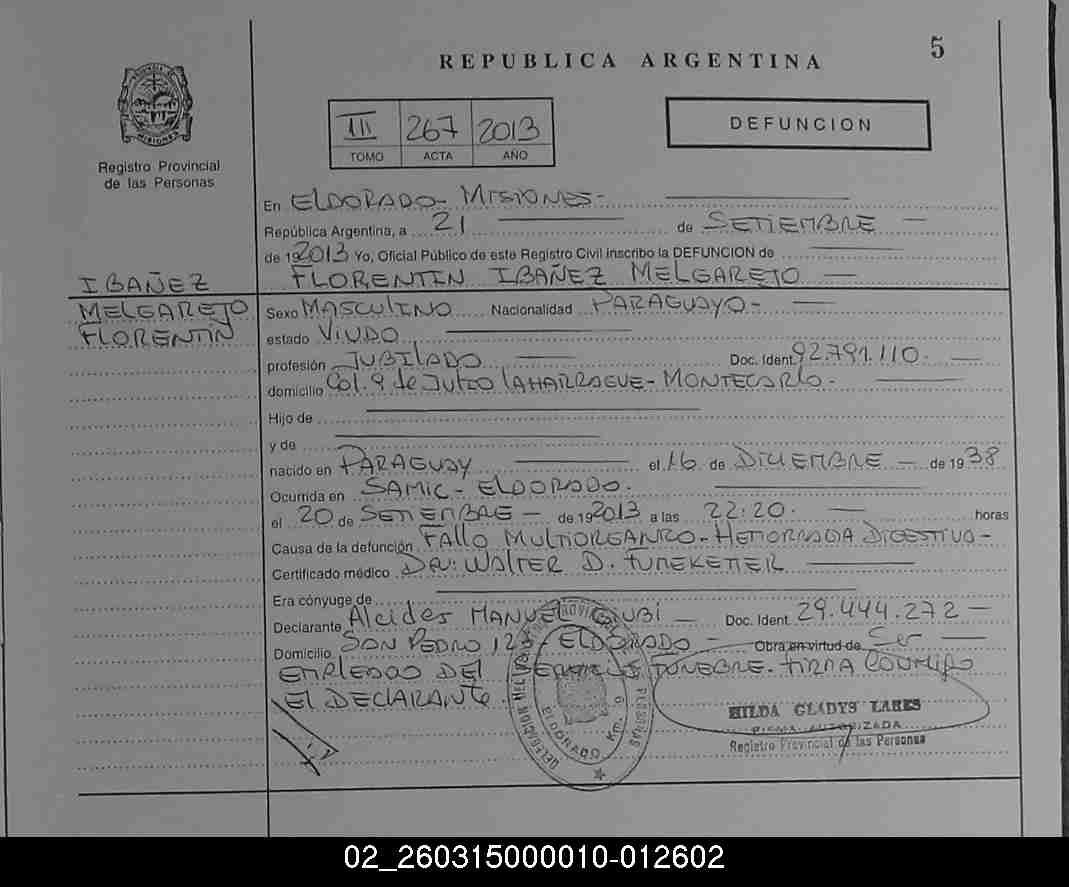 5
REPUBLICA ARGENTINA
PROVINCIA DE MISIONES
Registro Provincial
de las Personas
III 267 2013
TOMO ACTA AÑO
DEFUNCION
En ELDORADO - MISIONES -
República Argentina, a 21 de SETIEMBRE
de 192013 Yo, Oficial Público de este Registro Civil inscribo la DEFUNCION de
FLORENTIN IBAÑEZ MELGAREJO
IBAÑEZ
MELGAREJO
FLORENTIN
Sexo MASCULINO Nacionalidad PARAGUAYO -
estado VIUDO
profesión JUBILADO Doc. Ident. 92.791.110.
domicilio Col. 9 de Julio LAHARRAGUE - MONTECARLO -
Hijo de
y de
nacido en PARAGUAY el 16 de DICIEMBRE - de 1938
Ocurrida en SAMIC - ELDORADO.
el 20 de SETIEMBRE - de 192013 a las 22:20. horas
Causa de la defunción FALLO MULTIORGANICO - HEMORRAGIA DIGESTIVA -
Certificado médico DR: WALTER D.
Era cónyuge de
Declarante Alcides MANUEL Doc. Ident. 29.444.272 -
Domicilio SAN PEDRO 12 ELDORADO - Obra en virtud de Ser
EMPLEADO DEL FUNEBRE. FIRMA CONMIGO
EL DECLARANTE.
ELDORADO Km. 9
HILDA GLADYS LARES
FIRMA AUTORIZADA
Registro Provincial de las Personas
02_260315000010-012602